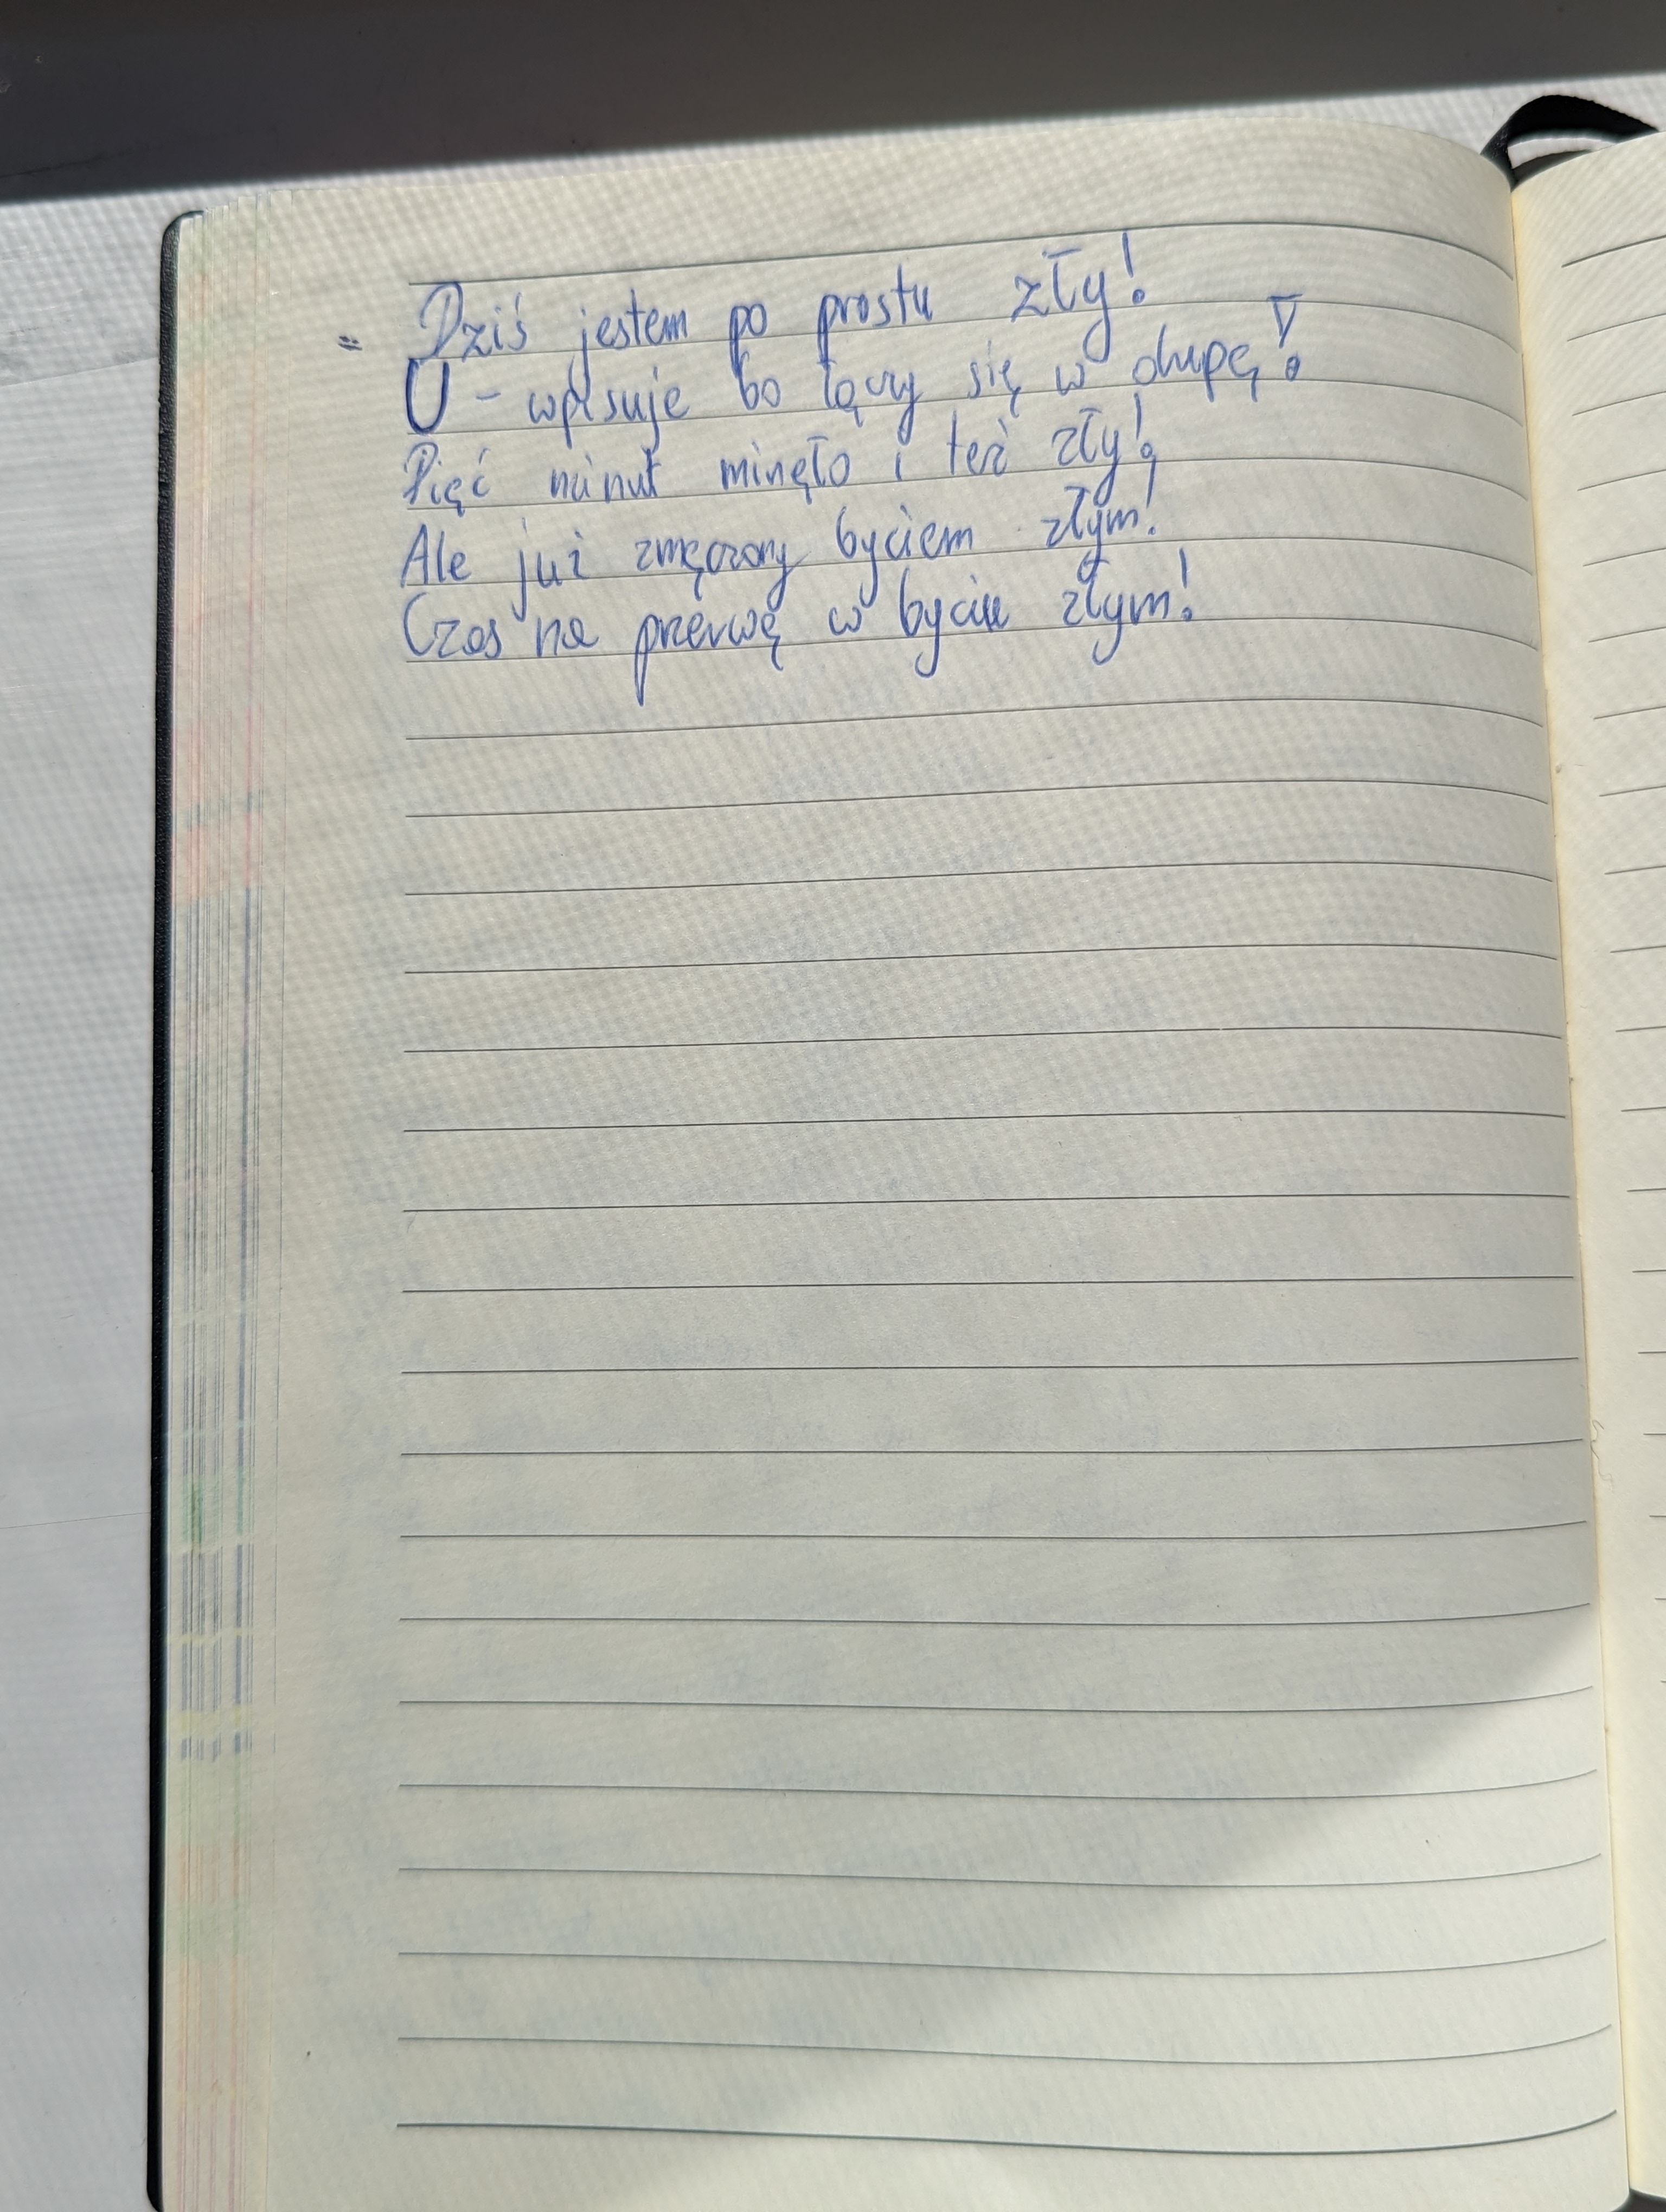 = Dziś jestem po prostu zły!
U - wpisuje bo łączy się w dupę!
Pięć minut minęło i też zły!
Ale już zmęczony byciem złym!
Czas na przerwę w byciu złym!